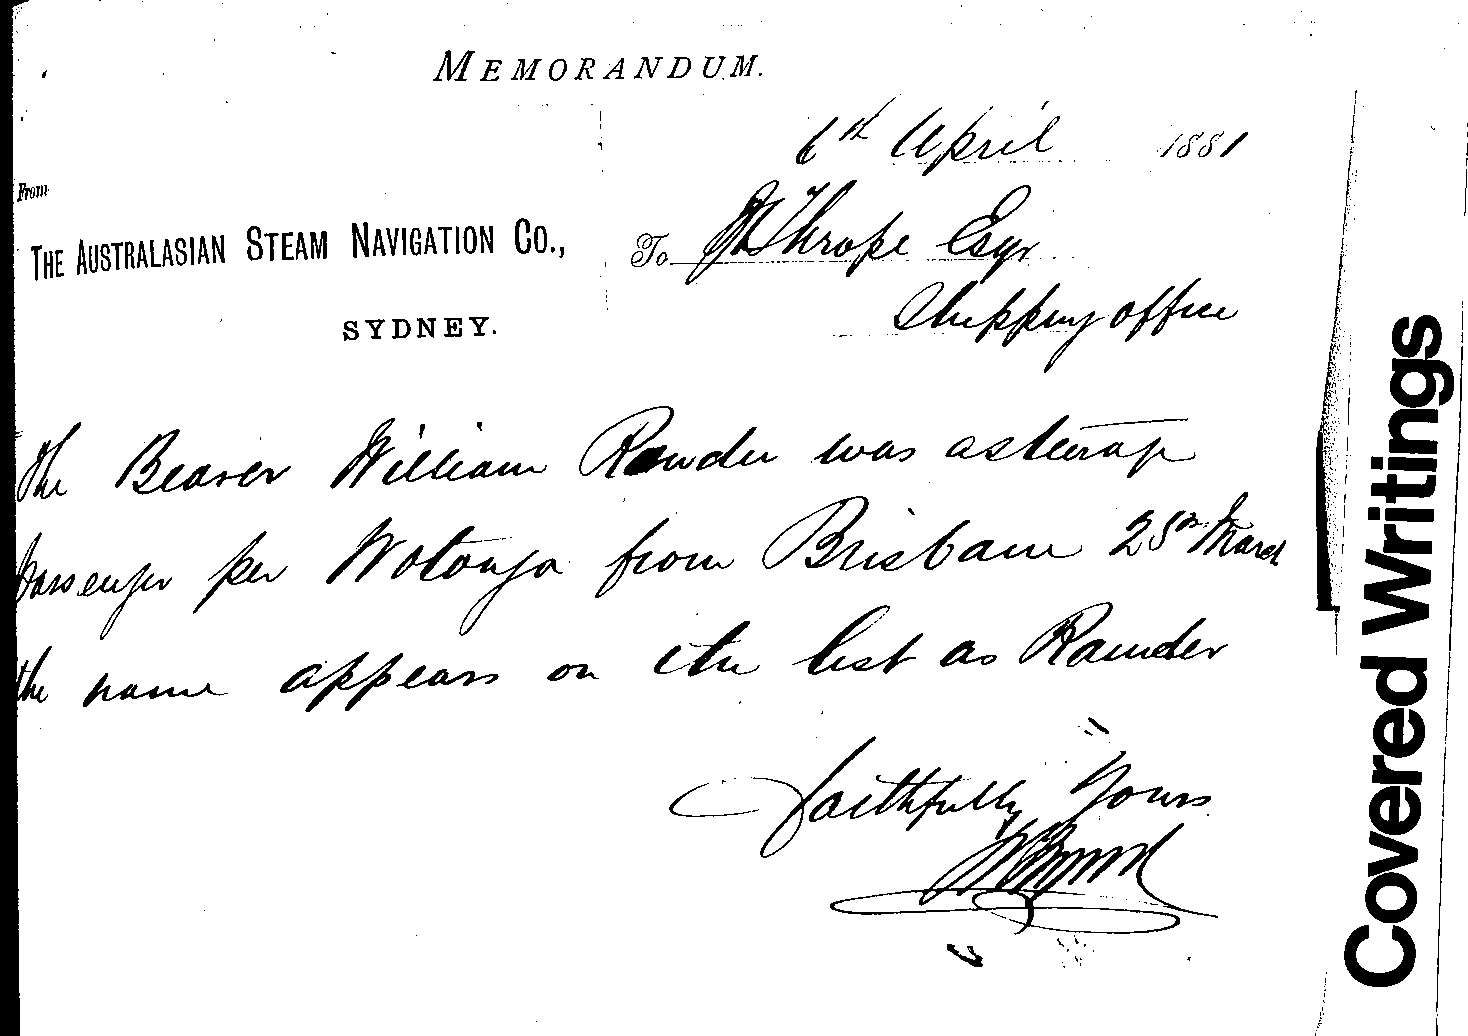 MEMORANDUM.
6th April 1881
From
THE AUSTRALASIAN STEAM NAVIGATION CO.,
To Thrope Esqr
SYDNEY.
Shipping office
The Bearer William Rawder was a steerage
passenger per Wotonga from Brisbane 25th March
the name appears on the list as Rawder
Faithfully Yours
Covered Writings